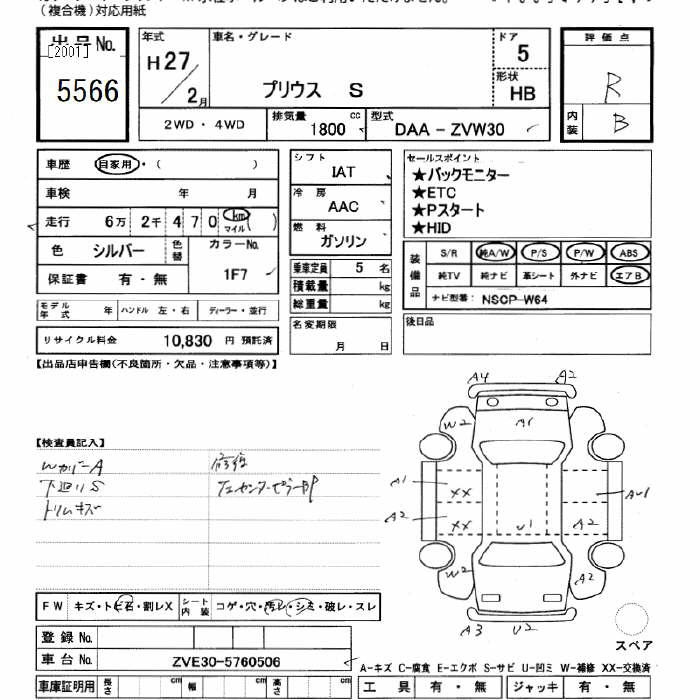 (複合機)対応用紙
出品 No.
[200T]
5566
年式
H27/2月
車名・グレード
プリウス S
ドア
5
形状
HB
2WD・4WD
排気量
1800 cc
型式
DAA-ZVW30
評価点
R
内装
B
車歴 自家用・( )
車検 年 月
走行 6万 2千 4 7 0 km マイル ( )
色 シルバー 色替 カラーNo.
1F7
保証書 有・無
モデル年式 年 ハンドル 左・右 ディーラー・並行
リサイクル料金 10,830 円 預託済
シフト
IAT
冷房
AAC
燃料
ガソリン
乗車定員 5 名
積載量 kg
総重量 kg
名変期限
月 日
セールスポイント
★バックモニター
★ETC
★Pスタート
★HID
装備品 S/R 純A/W P/S P/W ABS
純TV 純ナビ 革シート 外ナビ エアB
ナビ型番: NSCP-W64
後日品
【出品店申告欄(不良箇所・欠品・注意事項等)】
【検査員記入】
WカバーA 修復
下廻りS
トリムキズ
A4 A2
W2 A1
A1 XX
A2 XX U1 A2
W2 A2
A3 U2
スペア
FW キズ・トビ石・割レX シート内装 コゲ・穴・汚レ・シミ・破レ・スレ
登録 No.
車台 No. ZVE30-5760506
A-キズ C-腐食 E-エクボ S-サビ U-凹ミ W-補修 XX-交換済
車庫証明用 長さ cm 幅 cm 高さ cm
工具 有・無 ジャッキ 有・無